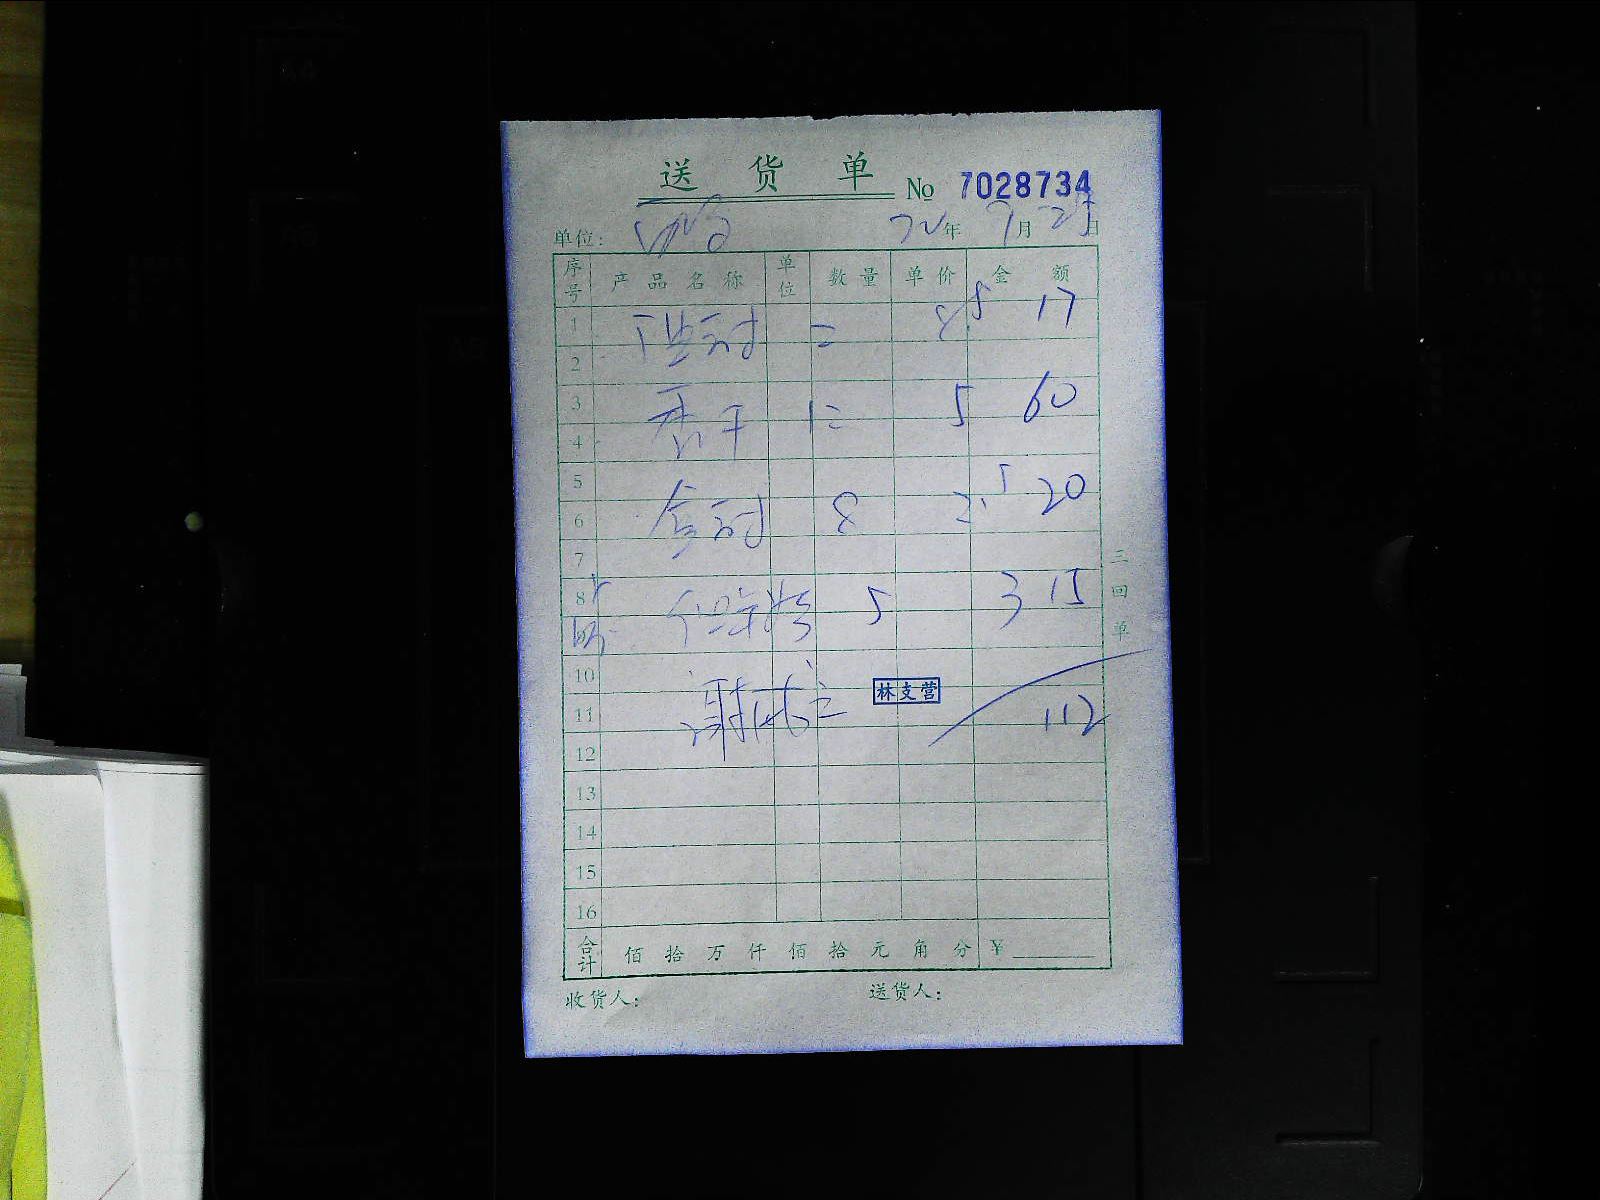 送 货 单 No 7028734
单位： 年 7月 日
序号 产品名称 单位 数量 单价 金额
1 二 8.5 17
2
3 香干 12 5 60
4
5
6 8 2.5 20
7
8 5 3 15
10
11 林支营 112
12
13
14
15
16
合计 佰 拾 万 仟 佰 拾 元 角 分 ￥
收货人： 送货人：
三回单